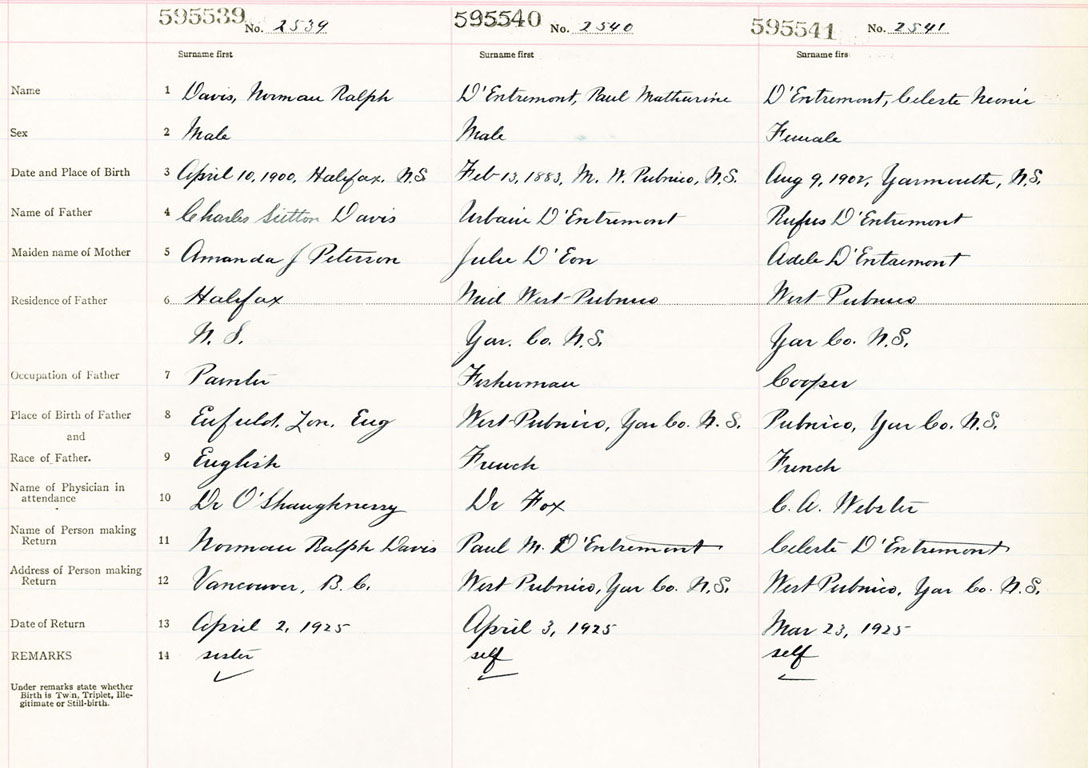 595539 No. 2539 595540 No. 2540 595541 No. 2541
Surname first Surname first Surname first
Name 1 Davis, Norman Ralph D'Entremont, Paul Mathurine D'Entremont, Celeste Neonie
Sex 2 Male Male Female
Date and Place of Birth 3 April 10, 1900, Halifax, N.S. Feb 13, 1883, M. W. Pubnico, N.S. Aug 9, 1902, Yarmouth, N.S.
Name of Father 4 Charles Sutton Davis Urbain D'Entremont Rufus D'Entremont
Maiden name of Mother 5 Amanda J Peterson Julie D'Eon Adele D'Entremont
Residence of Father 6 Halifax Mid West Pubnico West Pubnico
N. S. Yar. Co. N.S. Yar Co. N.S.
Occupation of Father 7 Painter Fisherman Cooper
Place of Birth of Father 8 Enfield, Lon. Eng West Pubnico, Yar Co. N.S. Pubnico, Yar Co. N.S.
and
Race of Father. 9 English French French
Name of Physician in
attendance 10 Dr O'Shaughnessy Dr Fox C. A. Webster
Name of Person making
Return 11 Norman Ralph Davis Paul M. D'Entremont Celeste D'Entremont
Address of Person making
Return 12 Vancouver, B.C. West Pubnico, Yar Co. N.S. West Pubnico, Yar Co. N.S.
Date of Return 13 April 2, 1925 April 3, 1925 Mar 23, 1925
REMARKS 14 sister self self
Under remarks state whether
Birth is Twin, Triplet, Ille-
gitimate or Still-birth.